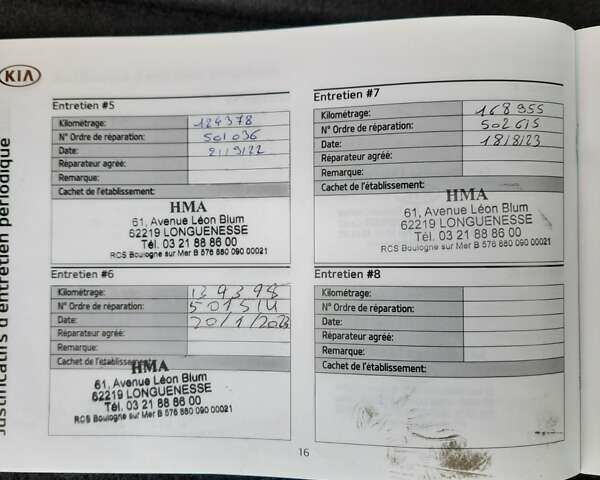 KIA
Justificatifs d'entretien périodique
Entretien #5
Kilométrage: 124378
N° Ordre de réparation: 501036
Date: 21/9/22
Réparateur agréé:
Remarque:
Cachet de l'établissement:
HMA
61, Avenue Léon Blum
62219 LONGUENESSE
Tél. 03 21 88 86 00
RCS Boulogne sur Mer B 576 880 090 00021
Entretien #6
Kilométrage: 139398
N° Ordre de réparation: 501514
Date: 20/1/2023
Réparateur agréé:
Remarque:
Cachet de l'établissement:
HMA
61, Avenue Léon Blum
62219 LONGUENESSE
Tél. 03 21 88 86 00
RCS Boulogne sur Mer B 576 880 090 00021
Entretien #7
Kilométrage: 168955
N° Ordre de réparation: 502615
Date: 18/8/23
Réparateur agréé:
Remarque:
Cachet de l'établissement:
HMA
61, Avenue Léon Blum
62219 LONGUENESSE
Tél. 03 21 88 86 00
RCS Boulogne sur Mer B 576 880 090 00021
Entretien #8
Kilométrage:
N° Ordre de réparation:
Date:
Réparateur agréé:
Remarque:
Cachet de l'établissement:
16